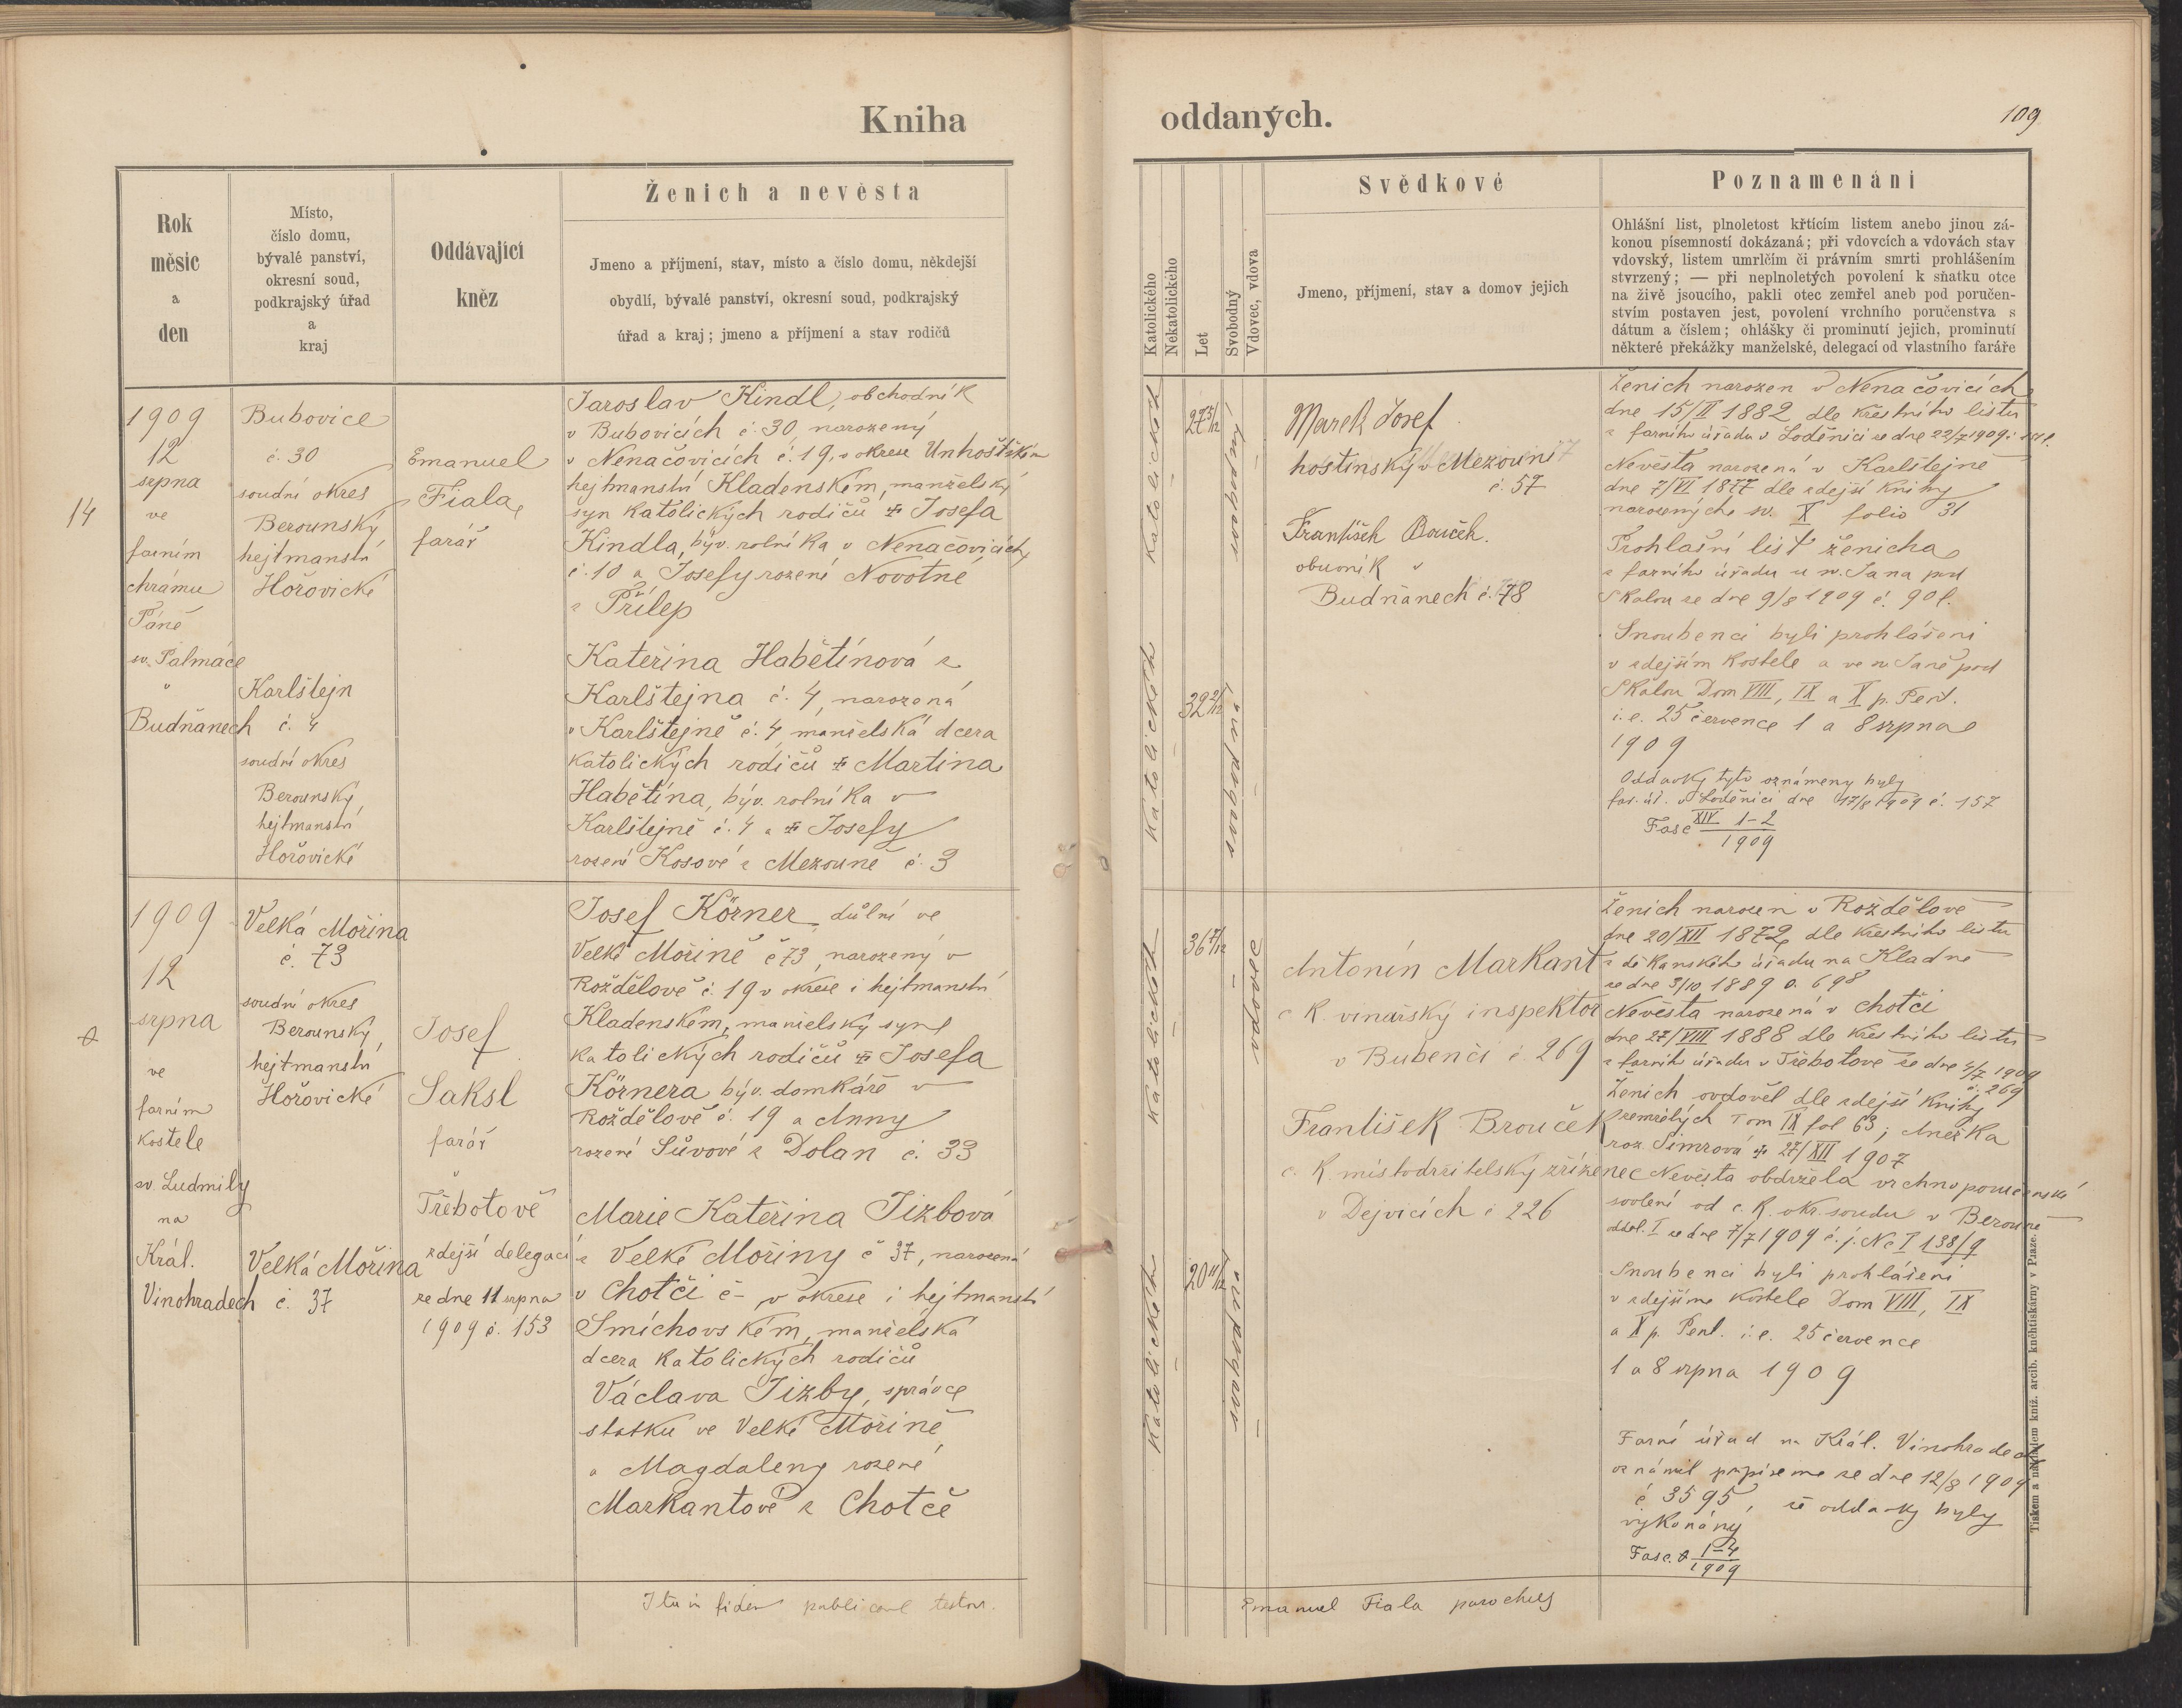 Kniha
oddaných.
109
Rok
měsíc
a
den
Místo,
číslo domu,
bývalé panství,
okresní soud,
podkrajský úřad
a
kraj
Oddávající
kněz
Ženich a nevěsta
Jmeno a příjmení, stav, místo a číslo domu, někdejší
obydlí, bývalé panství, okresní soud, podkrajský
úřad a kraj; jmeno a příjmení a stav rodičů
Katolického
Nekatolického
Let
Svobodný
Vdovec, vdova
Svědkové
Jmeno, příjmení, stav a domov jejich
Poznamenání
Ohlášní list, plnoletost křtícím listem anebo jinou zá-
konou písemností dokázaná; při vdovcích a vdovách stav
vdovský, listem umrlčím či právním smrti prohlášením
stvrzený; — při neplnoletých povolení k sňatku otce
na živě jsoucího, pakli otec zemřel aneb pod poručen-
stvím postaven jest, povolení vrchního poručenstva s
dátum a číslem; ohlášky či prominutí jejich, prominutí
některé překážky manželské, delegací od vlastního faráře
14
1909
12
srpna
ve
farním
chrámu
Páně
sv. Palmáce
v
Budňanech
Bubovice
č. 30
soudní okres
Berounský
hejtmanství
Hořovické
Karlštejn
č. 4
soudní okres
Berounský,
hejtmanství
Hořovické
Emanuel
Fiala,
farář
Jaroslav Kindl, obchodník
v Bubovicích č. 30, narozený
v Nenačovicích č. 19, v okrese Unhošťském
hejtmanství Kladenském, manželský
syn katolických rodičů Josefa
Kindla, býv. rolníka v Nenačovicích,
č. 10 a Josefy rozené Novotné
z Přílep
Kateřina Habětínová z
Karlštejna č. 4, narozená
v Karlštejně č. 4, manželská dcera
katolických rodičů Martina
Habětína, býv. rolníka v
Karlštejně č. 4 a Josefy
rozené Kosové z Mezouně č. 3
katolických
27 5/12
svobodný
katolických
32 2/12
svobodná
Marek Josef
hostinský v Mezouni
č. 57
František Bouček.
obuvník v
Budňanech č. 78
Ženich narozen v Nenačovicích
dne 15/II 1882 dle křestního listu
z farního úřadu v Loděnici ze dne 22/7 1909
Nevěsta narozená v Karlštejně
dne 7/VI 1877 dle zdejší knihy
narozených sv. X folio 31
Prohlašní list ženicha
z farního úřadu u sv. Jana pod
Skalou ze dne 9/8 1909 č. 901.
Snoubenci byli prohlášeni
v zdejším kostele a ve sv. Janě pod
Skalou Dom VIII, IX a X p. Pent.
i. e. 25 července 1 a 8 srpna
1909
Oddavky tyto oznámeny byly
far. úř. v Loděnici dne 17/8 1909 č. 157
Fasc XIV 1-2
1909
1909
12
srpna
ve
farním
kostele
sv. Ludmily
na
Král.
Vinohradech
Velká Mořina
č. 73
soudní okres
Berounský,
hejtmanství
Hořovické
Velká Mořina
č. 37
Josef
Saksl
farář
v
Třebotově
zdejší delegací
ze dne 11 srpna
1909 č. 153
Josef Körner důlní ve
Velké Mořině č 73, narozený v
Rozdělově č. 19 v okrese i hejtmanství
Kladenském, manželský syn
katolických rodičů Josefa
Körnera býv. domkáře v
Rozdělově č. 19 a Anny
rozené Sůvové z Dolan č. 33
Marie Kateřina Jizbová
z Velké Mořiny č 37, narozená
v Chotči č - v okrese i hejtmanství
Smíchovském, manželská
dcera katolických rodičů
Václava Jizby, správce
statku ve Velké Mořině
a Magdaleny rozené
Markantové z Chotče
katolických
36 7/12
vdovec
katolických
20 11/12
svobodná
Antonín Markant
c k. vinařský inspektor
v Bubenči č. 269
František Brouček
c. k. místodržitelský zřízenec
v Dejvicích č 226
Ženich narozen v Rozdělově
dne 20/XII 1872 dle křestního listu
z děkanského úřadu na Kladně
ze dne 3/10 1889 č. 698
Nevěsta narozená v Chotči
dne 27/VIII 1888 dle křestního listu
z farního úřadu v Třebotově ze dne 4/7 1909
č. 269
Ženich ovdověl dle zdejší knihy
zemřelých Tom IX fol 63; Anežka
roz. Šimrová 27/XII 1907
Nevěsta obdržela vrchnoporučenské
svolení od c. k. okr. soudu v Berouně
odděl. I ze dne 7/7 1909 č. j. Nc I 138/9
Snoubenci byli prohlášeni
v zdejším kostele Dom VIII, IX
a X p. Pent. i. e. 25 července
1 a 8 srpna 1909
Farní úřad na Král. Vinohradech
oznámil přípisem ze dne 12/8 1909
č 3595, že oddavky byly
vykonány
Fasc. 1-4
1909
Ita in fidem publicam testor.
Emanuel Fiala parochus
Tiskem a nákladem kníž. arcib. knihtiskárny v Praze.